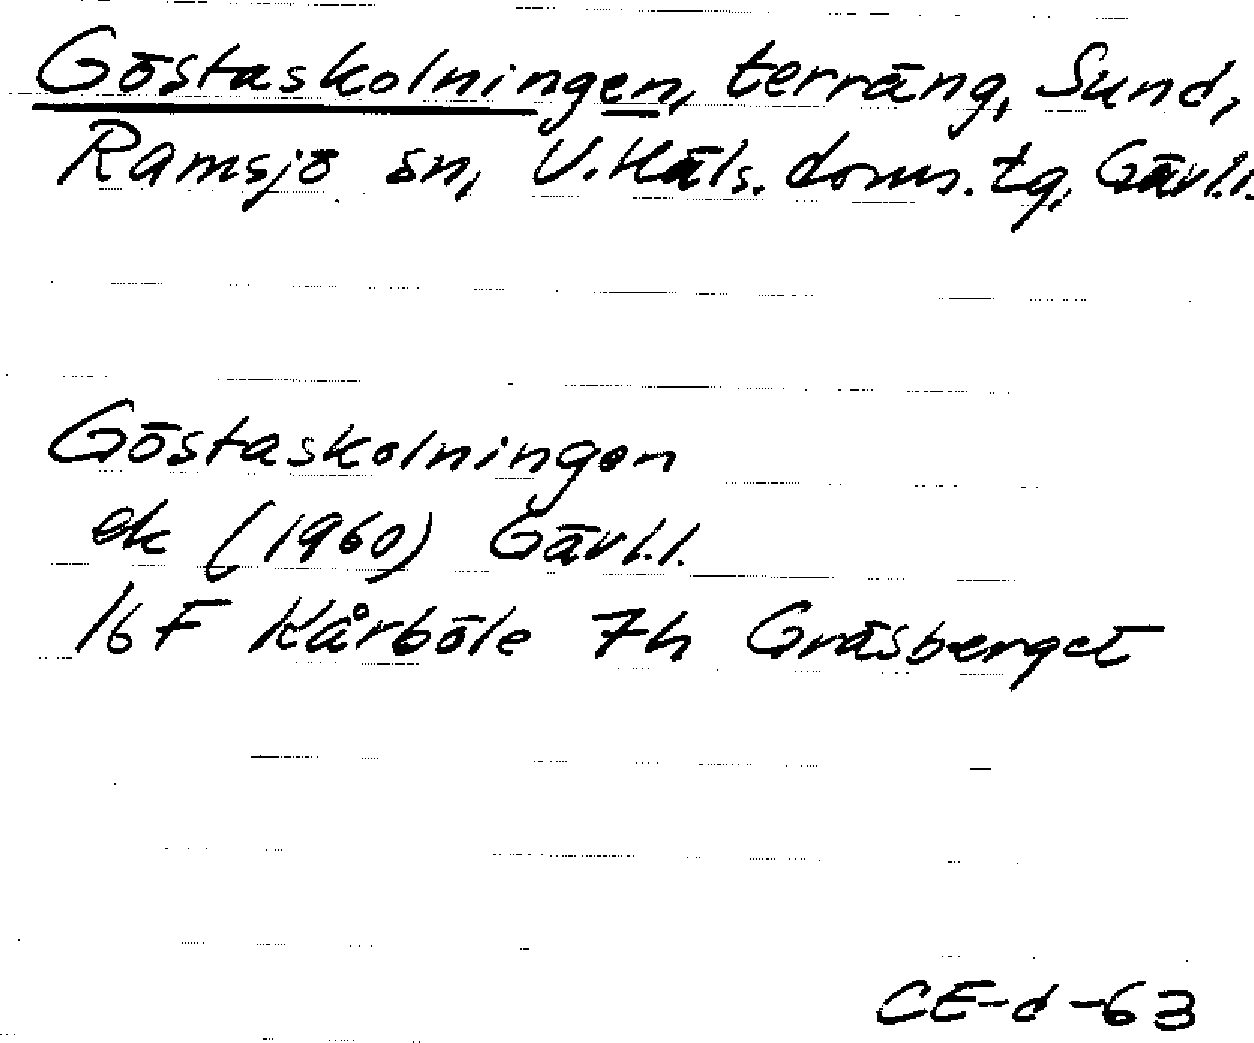 Göstaskolningen, terräng, Sund,
Ramsjö sn, V. Häls. doms. tg, Gävl.l.
Göstaskolningen
ek (1960) Gävl.l.
16F Kårböle 7h Gråsberget
CE-d-63